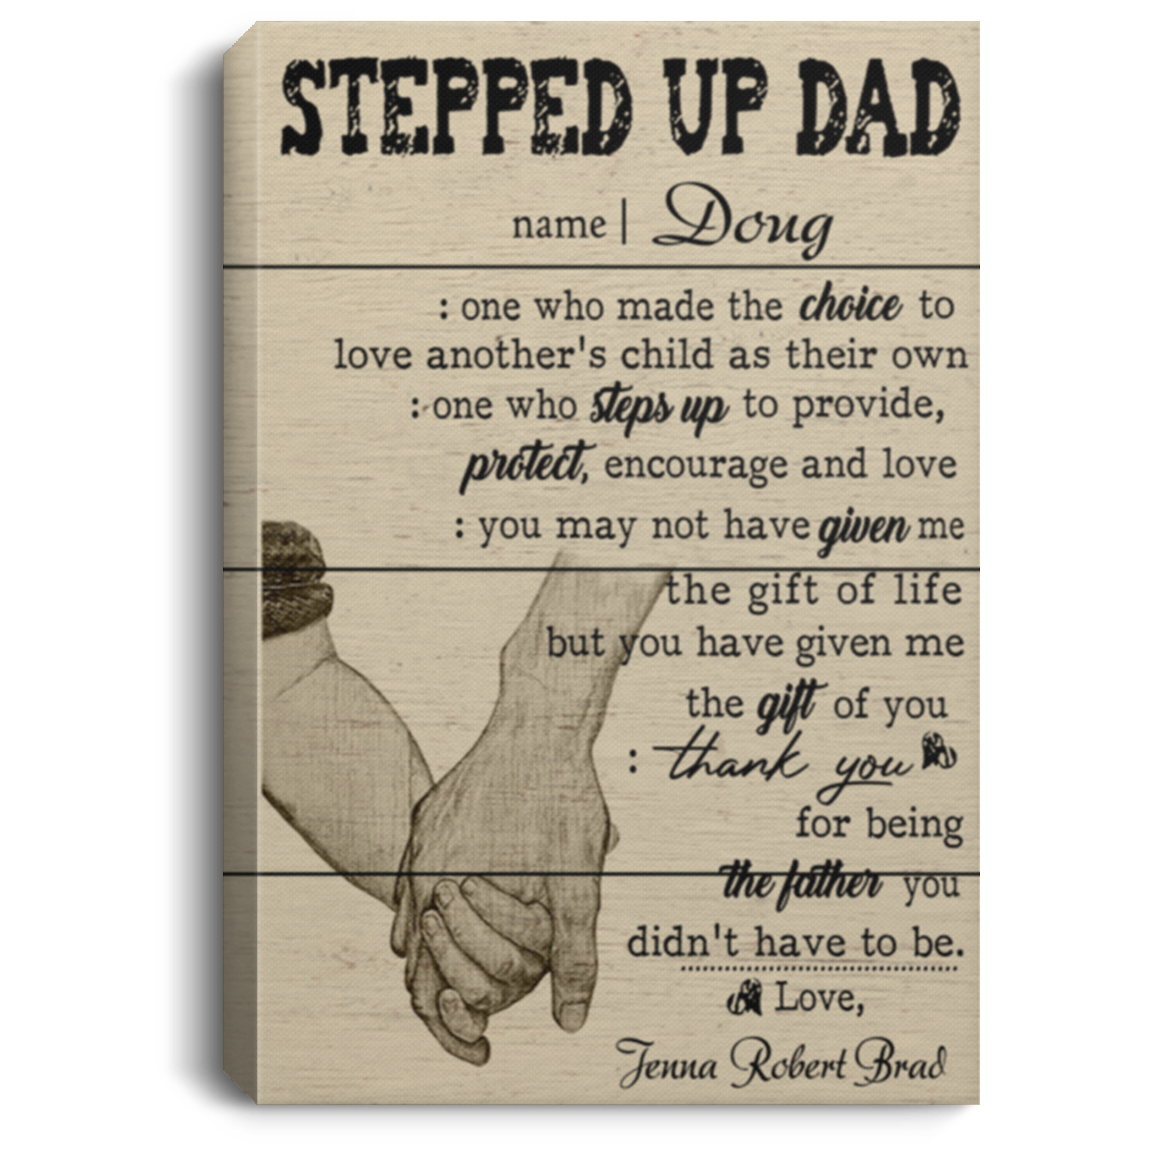 STEPPED UP DAD
name | Doug
: one who made the choice to
love another's child as their own
: one who steps up to provide,
protect, encourage and love
: you may not have given me
the gift of life
but you have given me
the gift of you
: thank you
for being
the father you
didn't have to be.
Love,
Jenna Robert Brad